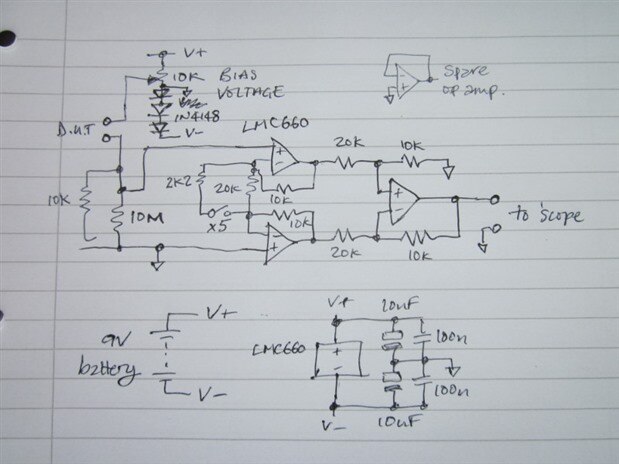 V+
10K BIAS
VOLTAGE
1N4148
V-
D.U.T
LMC660
Spare
op amp.
20K
10K
2K2
20K
10K
x5
10K
10K
10M
20K
10K
to 'scope
9V
battery
V+
V-
LMC660
V+
V-
10uF
100n
100n
10uF